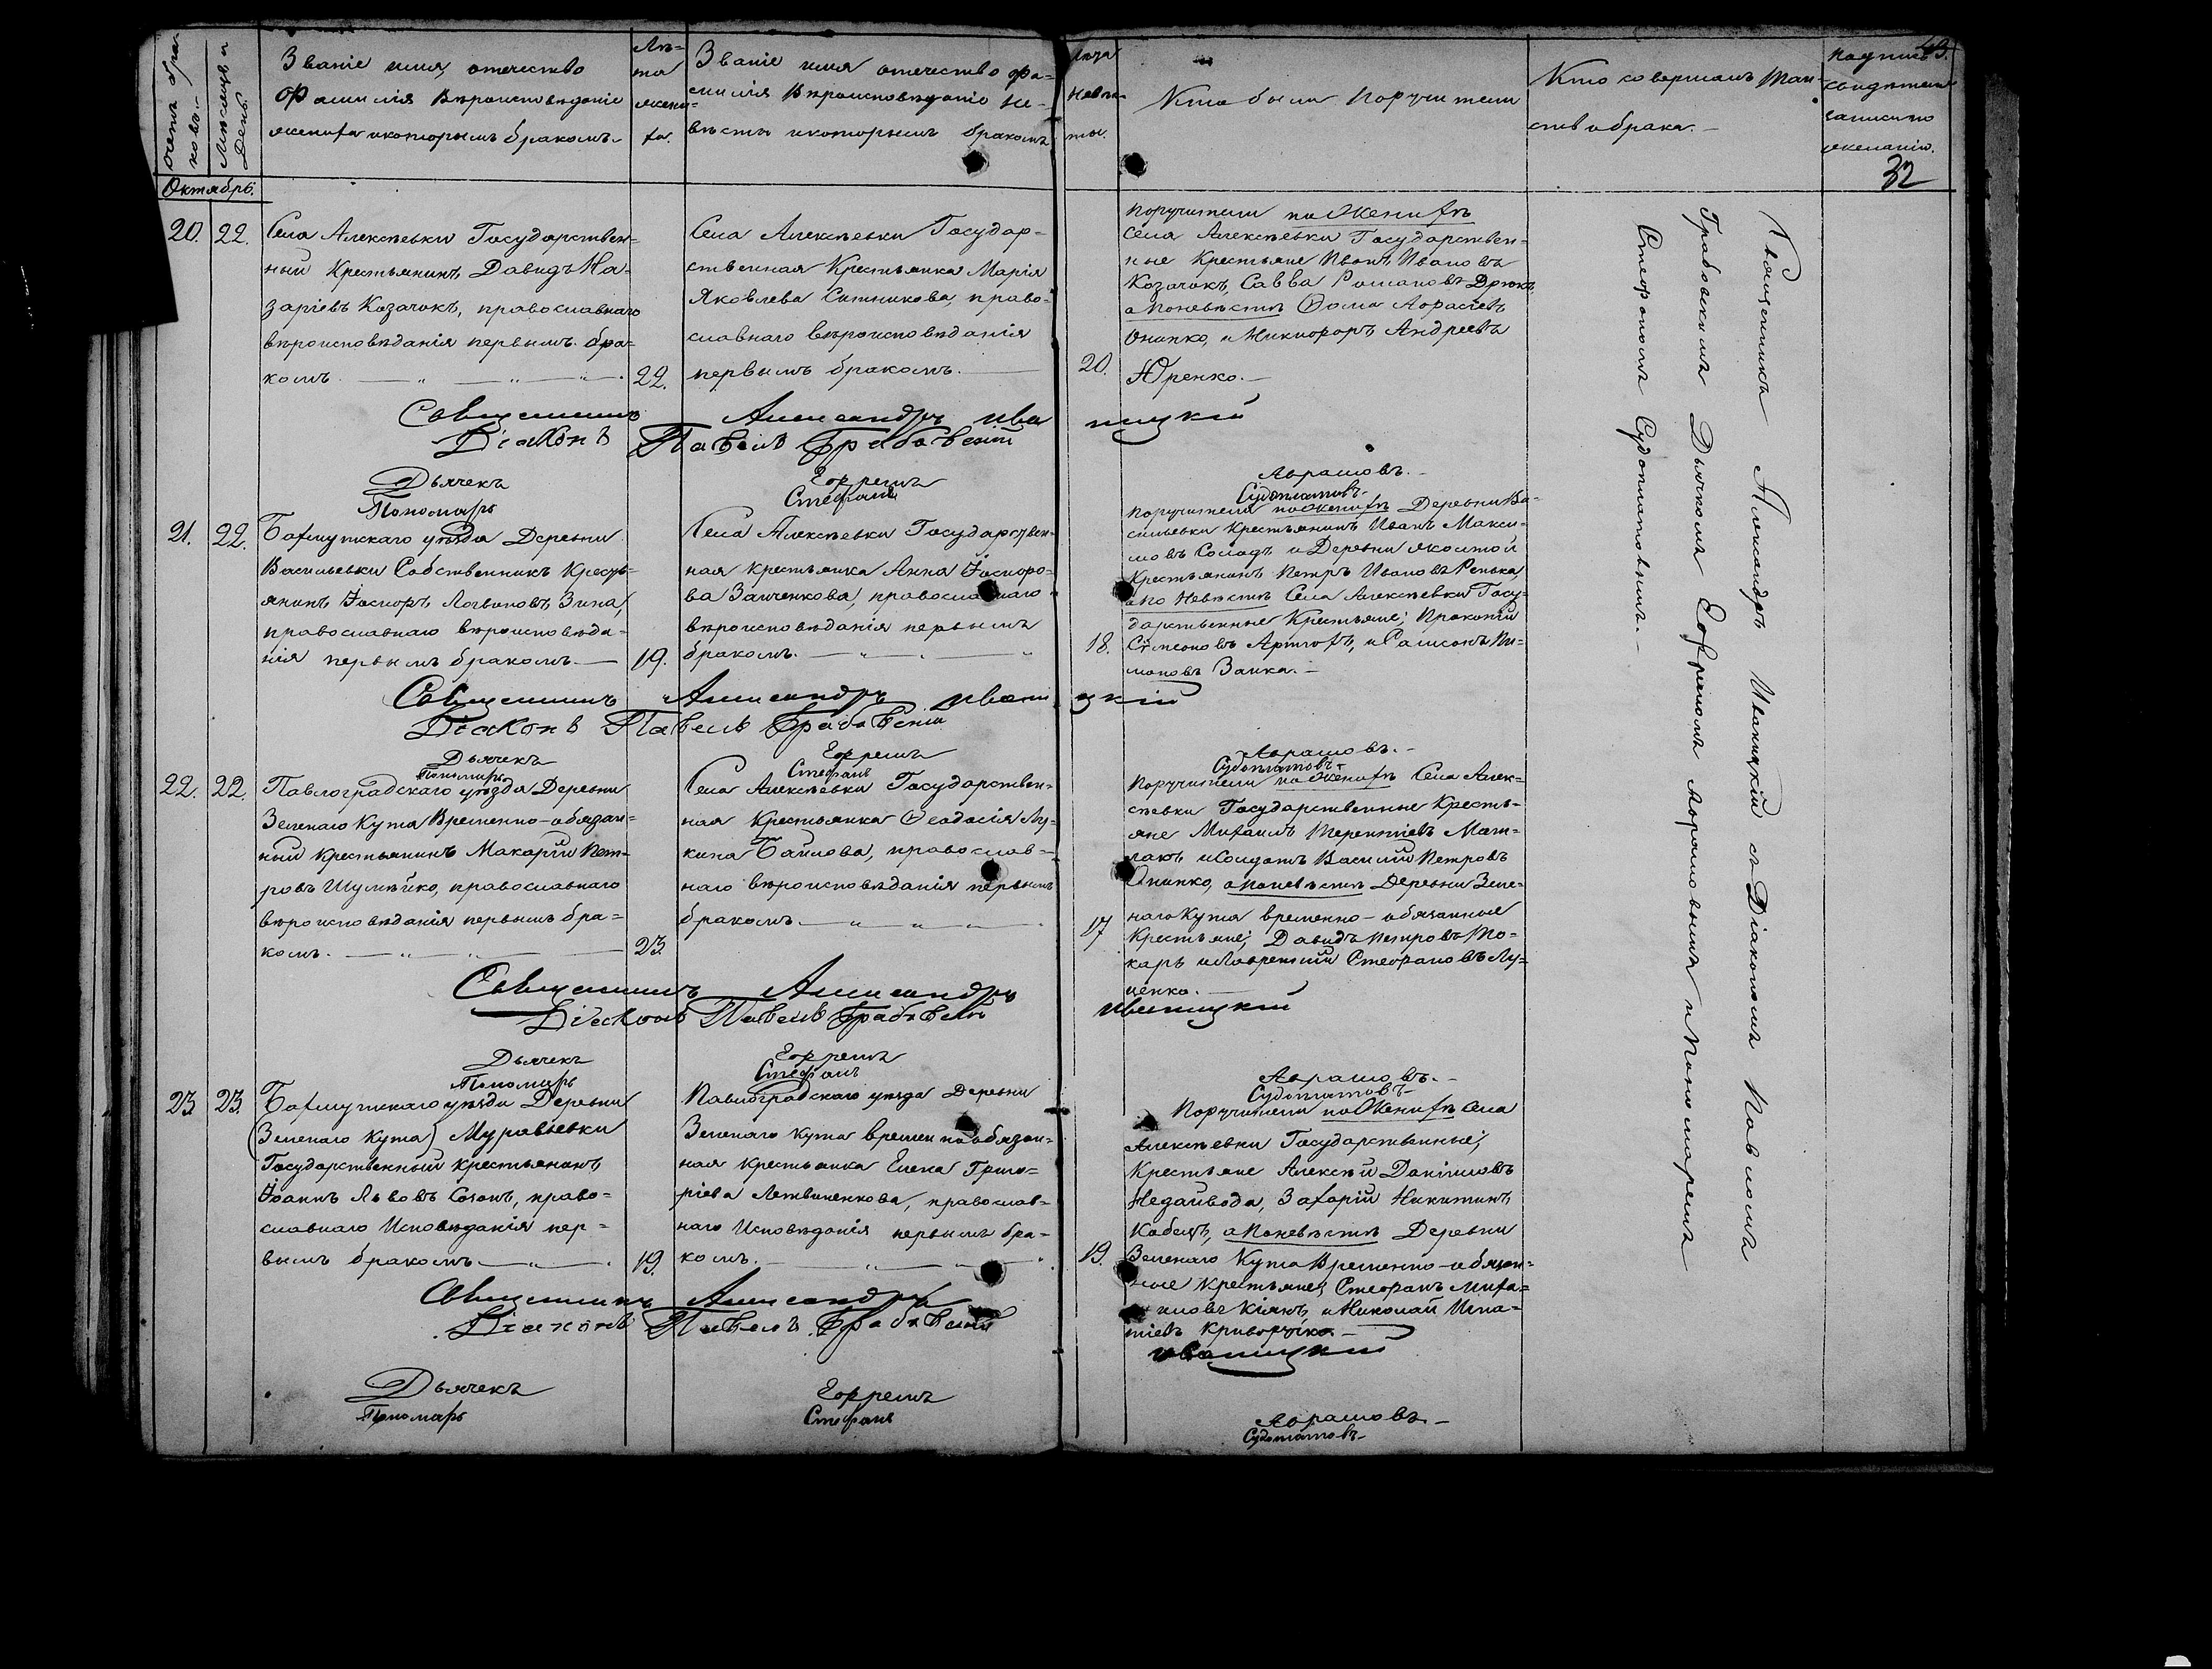 Счетъ бра-
ковъ.
Мѣсяцъ и
День.
Званіе имя, отечество
фамилія Вѣроисповѣданіе
жениха икоторымъ бракомъ.
Лѣ-
та
жени-
ха.
Званіе имя отечество фа-
милія Вѣроисповѣданіе не-
вѣсты икоторымъ бракомъ
Лѣта
Невѣс-
ты.
Кто были Поручители
Кто совершалъ Таин-
ство брака.
43.
подпись
свидѣтелей
записи по
желанію.
32
Октябрь.
20. 22.
Села Алексѣевки Государствен-
ный Крестьянинъ Давидъ На-
заріевъ Козачокъ, православнаго
вѣроисповѣданія первымъ бра-
комъ.
22.
Села Алексѣевки Государ-
ственная Крестьянка Марія
Яковлева Ситникова, право-
славнаго вѣроисповѣданія
первымъ бракомъ.
20.
Поручители по Женихѣ
Села Алексѣевки Государствен-
ные Крестьяне Иванъ Ивановъ
Козачокъ, Савва Романовъ Дрюкъ,
а Поневѣстѣ Ѳома
Онипко, и Никифоръ Андреевъ
Юренко.
Священникъ Александръ Иваницкій
Діаконъ Павелъ Грабовскій
Дьячекъ Ефремъ Аврамовъ.
Пономарь Стефанъ Судоплатовъ.
21. 22.
Бахмутскаго уѣзда Деревни
Васильевки Собственникъ Кресть-
янинъ Іосифъ Логвиновъ Зина,
православнаго вѣроисповѣда-
нія первымъ бракомъ.
19.
Села Алексѣевки Государствен-
ная Крестьянка Анна
ва Заиченкова, православнаго
вѣроисповѣданія первымъ
бракомъ.
18.
Поручители по Женихѣ Деревни Ва-
сильевки Крестьянинъ Иванъ Макси-
мовъ Солодъ и Деревни
Крестьянинъ Петръ Ивановъ Репька,
а по Невѣстѣ Села Алексѣевки Госу-
дарственные Крестьяне; Прокопій
Симеоновъ Артюхъ, и Самсонъ Пи-
моновъ Заика.
Священникъ Александръ Иваницкій
Діаконъ Павелъ Грабовскій
Дьячекъ Ефремъ Аврамовъ.
Пономарь Стефанъ Судоплатовъ
22. 22.
Павлоградскаго уѣзда Деревни
Зеленаго Кута Временно-обязан-
ный крестьянинъ Макарій Пет-
ровъ Шулѣйко, православнаго
вѣроисповѣданія первымъ бра-
комъ.
23.
Села Алексѣевки Государствен-
ная Крестьянка Ѳеодосія Лу-
кина Байлова, православ-
наго вѣроисповѣданія первымъ
бракомъ.
17
Поручители по Женихѣ Села Алек-
сѣевки Государственные Кресть-
яне Михаилъ Терентіевъ Мат-
лакъ и Солдатъ Василій Петровъ
Онипко, а поневѣстѣ Деревни Зеле-
наго Кута временно-обязанные
Крестьяне; Давидъ Петровъ То-
карь и Лаврентій Стефановъ Лу-
ценко.
Священникъ Александръ Иваницкій
Діаконъ Павелъ Грабовскій
Дьячекъ Ефремъ Аврамовъ.
Пономарь Стефанъ Судоплатовъ
23. 23.
Бахмутскаго уѣзда Деревни
(Зеленаго Кута) Муравьевки
Государственный крестьянинъ
Іоаннъ Львовъ Созонъ, право-
славнаго Исповѣданія пер-
вымъ бракомъ
19.
Павлоградскаго уѣзда Деревни
Зеленаго Кута временнообязан-
ная крестьянка Елена Григо-
ріева Литвиненкова, православ-
наго Исповѣданія первымъ бра-
комъ.
19.
Поручители по Женихѣ Села
Алексѣевки Государственные;
Крестьяне Алексѣй Даніиловъ
Недайвода, Захарій Никитинъ
Кобецъ, а Поневѣстѣ Деревни
Зеленаго Кута Временно-обязан-
ные Крестьяне; Стефанъ Миха-
иловъ Кіякъ, и Николай Игна-
тіевъ Криворучко.
Священникъ Александръ Иваницкій
Діаконъ Павелъ Грабовскій
Дьячекъ Ефремъ Аврамовъ.
Пономарь Стефанъ Судоплатовъ
Священникъ Александръ Иваницкій съ Діакономъ Павломъ
Грабовскимъ Дьячкомъ Ефремомъ Аврамовымъ и Пономаремъ
Стефаномъ Судоплатовымъ.